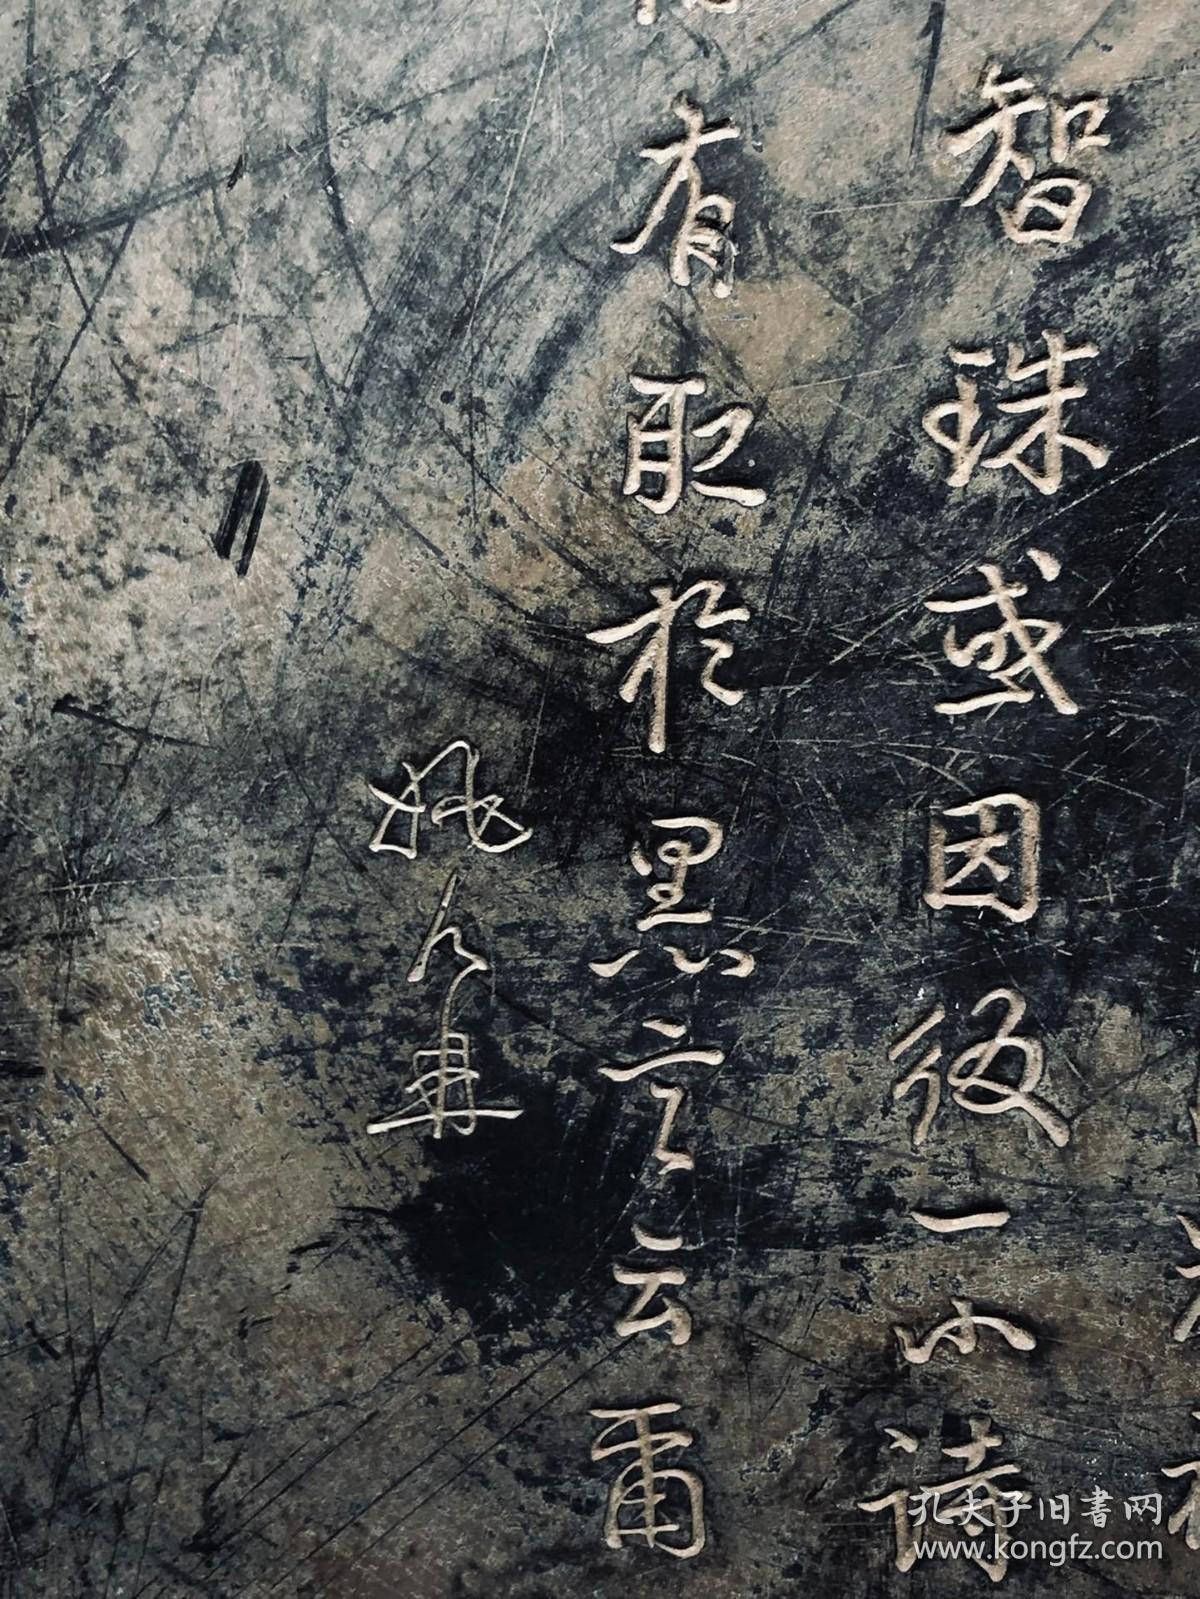 智珠或因後一小詩
有取於黑言云爾
孔夫子旧書网
www.kongfz.com